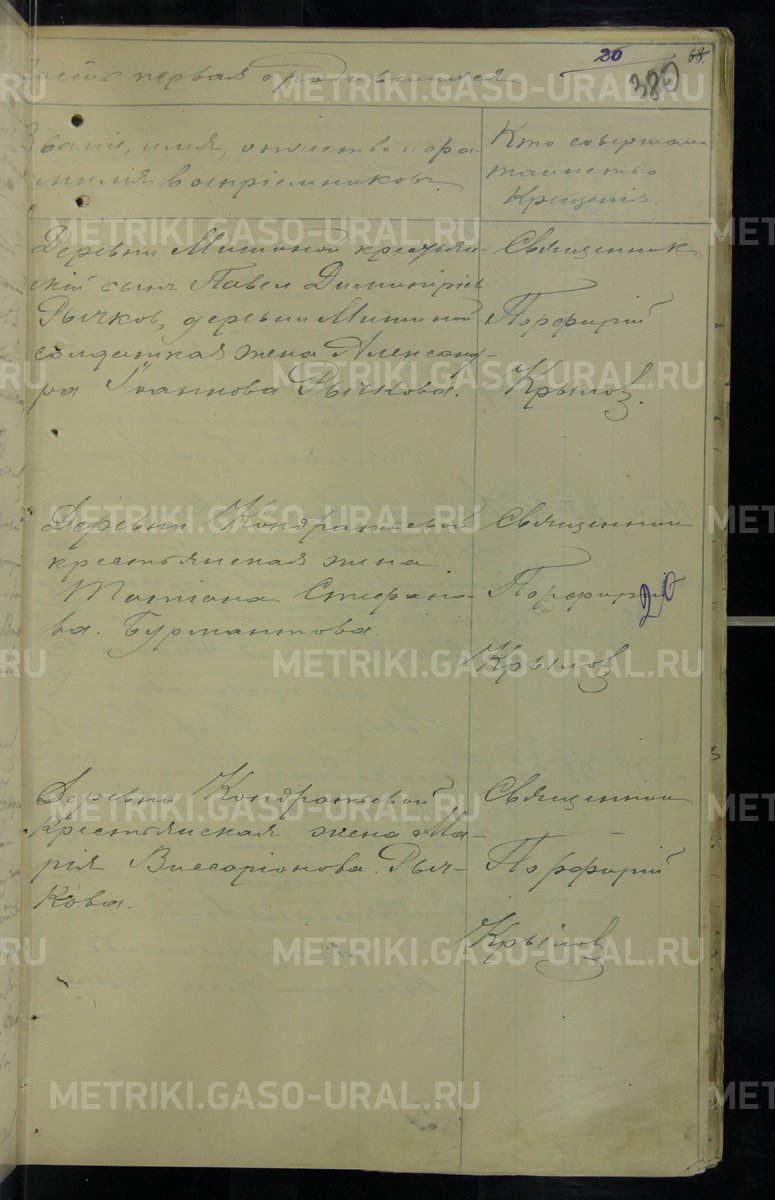 20 68.
380
Часть первая о родившихся
Званіе, имя, отчество и фа-
милія воспріемниковъ.
Кто совершалъ
таинство
Крещенія.
Деревни Мишиной крестьян-
скій сынъ Павелъ Димитріевъ
Рычковъ, деревни Мишиной
солдатская жена Александ-
ра Іоаннова Рычкова.
Священникъ
Порфирій
Крыловъ.
Деревни Кондратьевой
крестьянская жена
Татіана Стефано-
ва Бурмантова.
Священникъ
Порфирій
Крыловъ.
20
Деревни Кондратьевой
крестьянская жена Ма-
рія Виссаріонова Рыч-
кова.
Священникъ
Порфирій
Крыловъ
METRIKI.GASO-URAL.RU